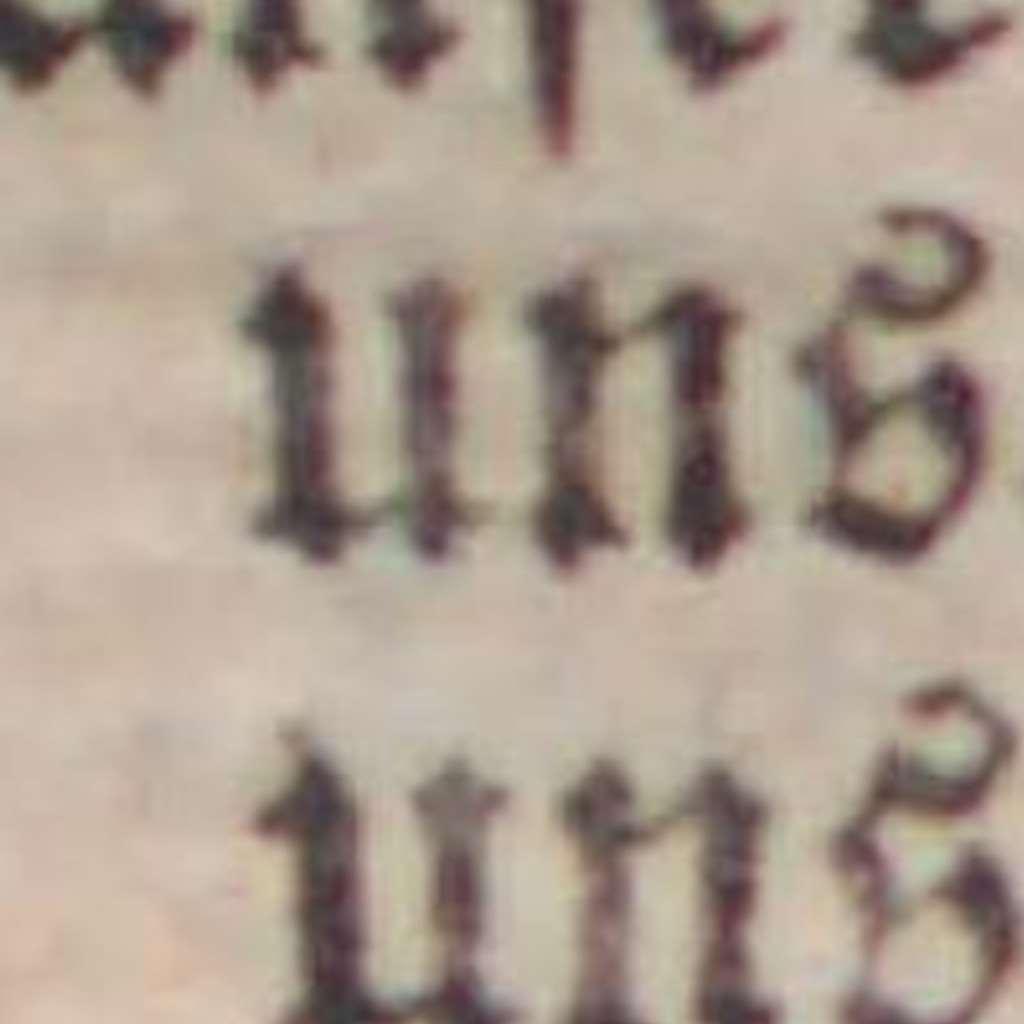 uns
uns